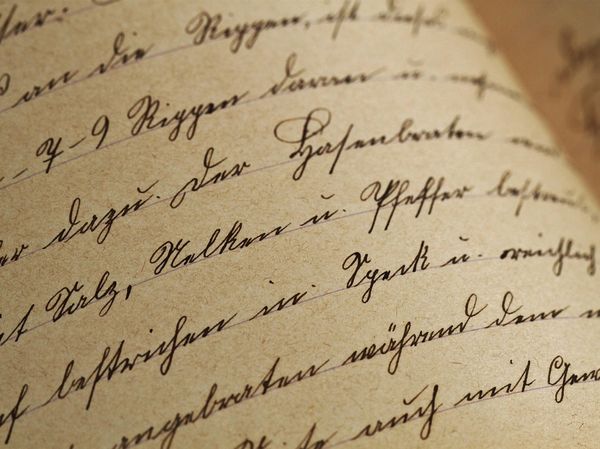 an die Rippen, ist dieses
7-9 Rippen daran u.
dazu. Der Hasenbraten
Salz, Nelken u. Pfeffer
bestrichen in. Speck u. reichlich
angebraten während dem
auch mit